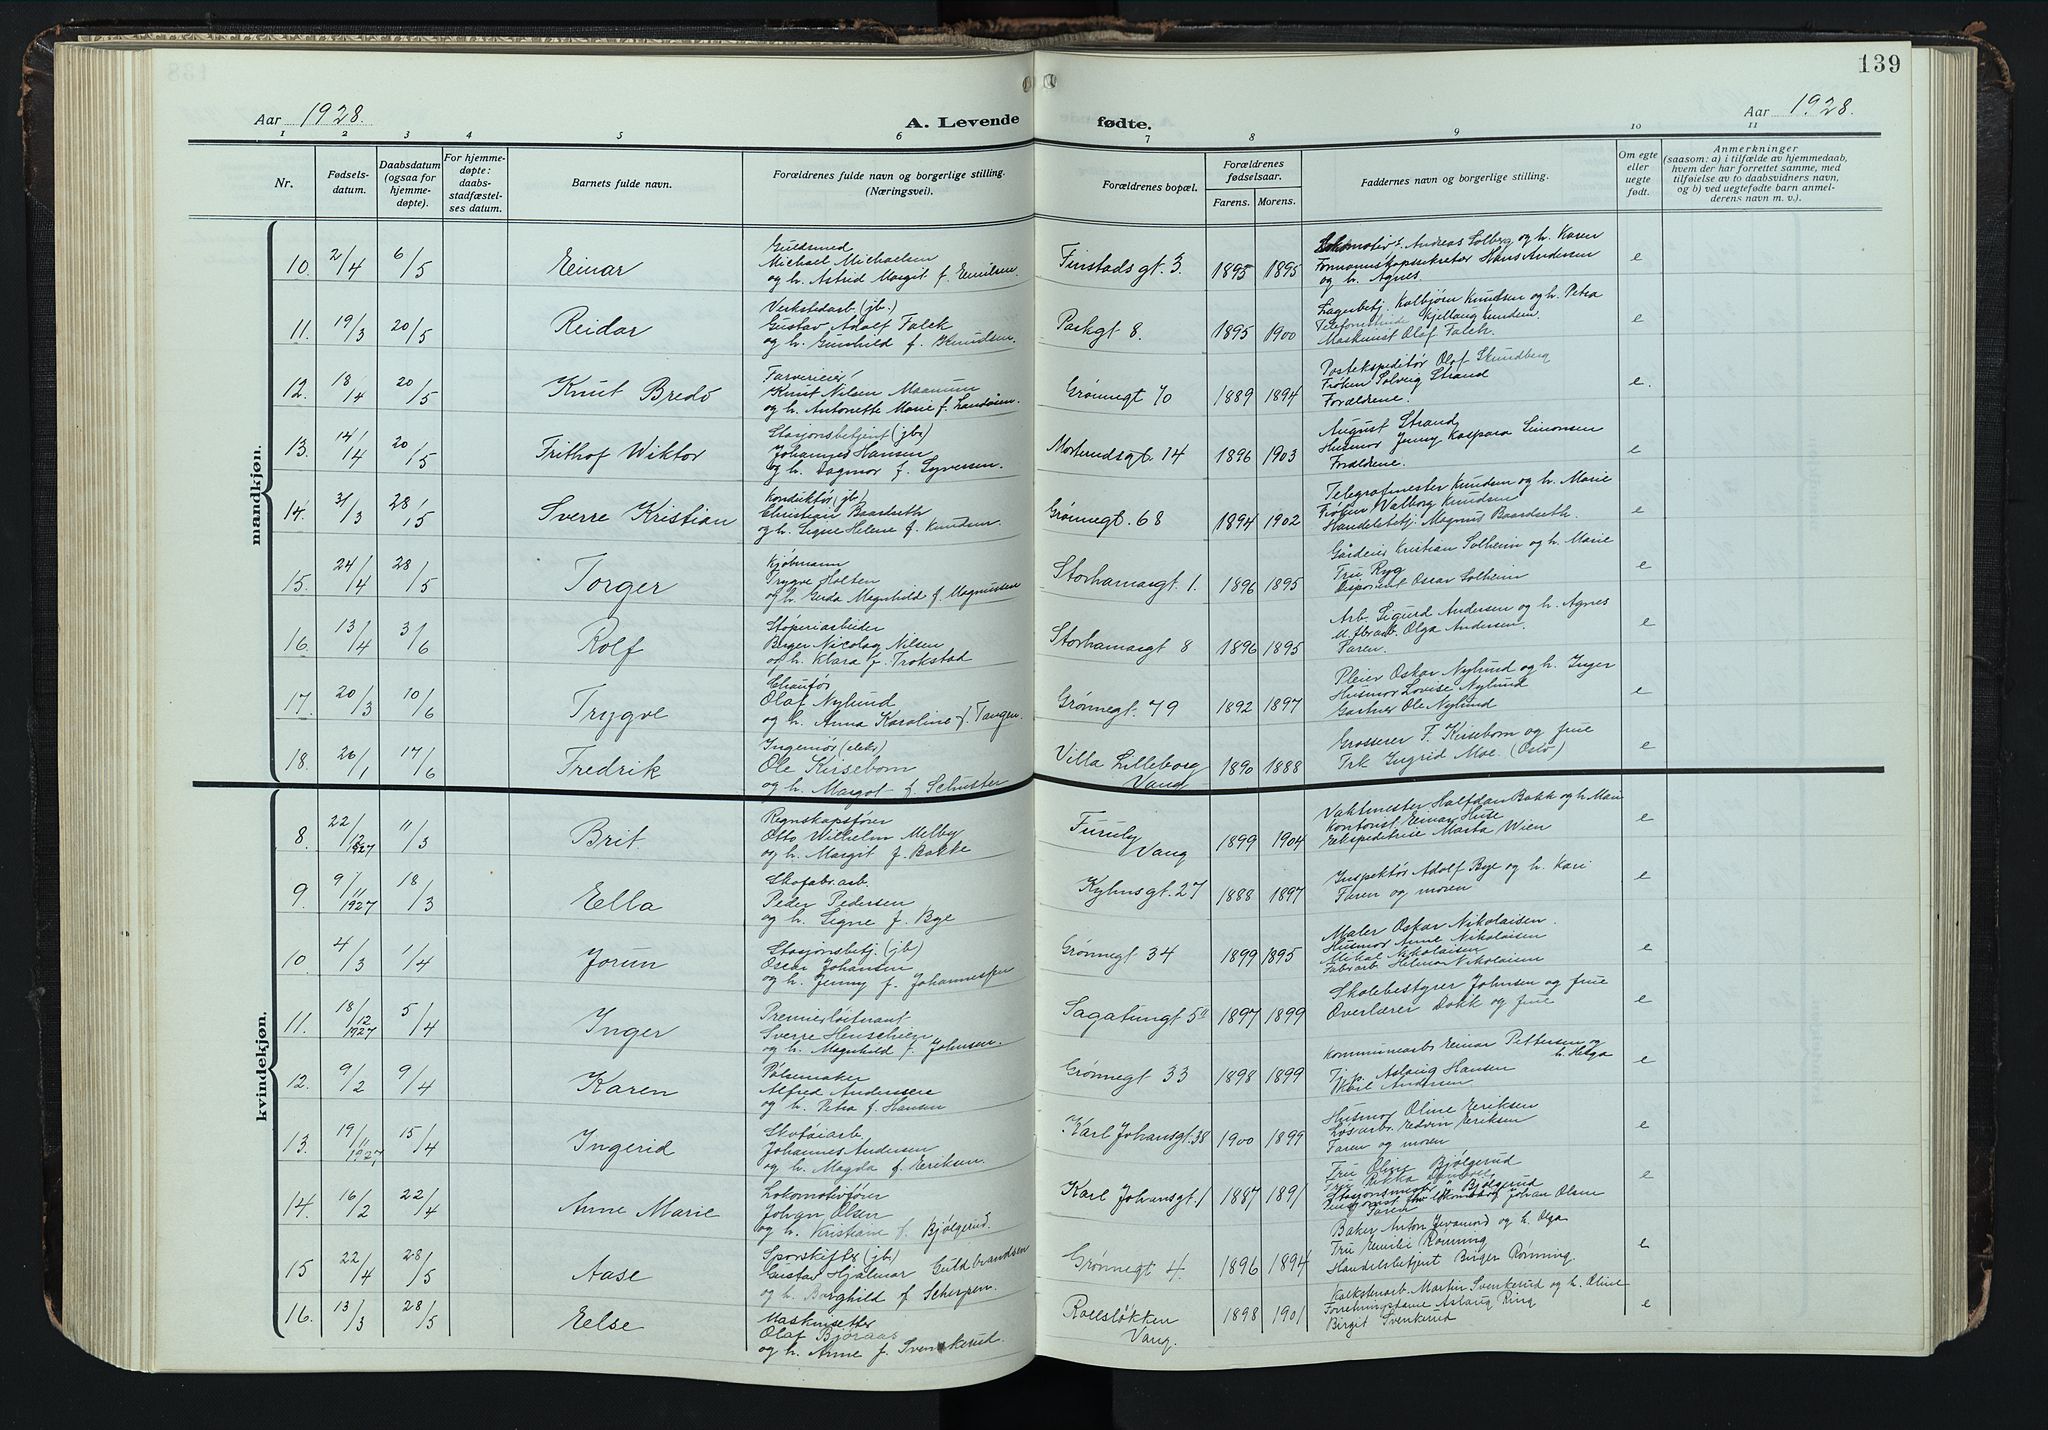 139
Aar 1928.
A. Levende fødte.
Aar 1928.
1 2 3 4 5 6 7 8 9 10 11
Nr.
Fødsels-
datum.
Daabsdatum
(ogsaa for
hjemme-
døpte).
For hjemme-
døpte:
daabs-
stadfæstel-
ses datum.
Barnets fulde navn.
Forældrenes fulde navn og borgerlige stilling.
(Næringsvei).
Forældrenes bopæl.
Forældrenes
fødselsaar.
Farens. Morens.
Faddernes navn og borgerlige stilling.
Om egte
eller
uegte
født.
Anmerkninger
(saasom: a) i tilfælde av hjemmedaab,
hvem der har forrettet samme, med
tilføielse av to daabsvidners navn,
og b) ved uegtefødte barn anmel-
derens navn m. v.).
mandkjøn.
10. 2/4 6/5 Einar
Guldsmed
Michael Michaelsen
og h. Astrid Margit f. Emilsen
Finstadsgt 3. 1895 1895
Lokomotivf. Andreas Solberg og h. Karen
Formannskapssekretær Hans Andersen
og h. Agnes.
e
11. 19/3 20/5 Reidar
Verkstedarb. (jb.)
Gustav Adolf Falck
og h. Gunhild f. Knudsen.
Parkgt 8. 1895 1900
Lagerbetj. Kolbjørn Knudsen og h. Petra
Kjellaug Knudsen.
Maskinist Olaf Falck.
e
12. 18/4 20/5 Knut Bredo
Farverieier
Knut Nilsen Maanum
og h. Antonette Marie f. Landåsen.
Grønnegt 70 1889 1894
Postekspeditør Olaf Strandberg
Frøken Solveig Strand
Forældrene.
e.
13. 14/4 20/5 Frithof Wiktor
Stasjonsbetjent (jb.)
Johannes Hansen
og h. Dagmor f. Syversen.
Morterudsgt. 14 1896 1903
August Strand
Husmor Jenny Kaspara Simonsen
Forældrene.
e
14. 31/3 28/5 Sverre Kristian
Konduktør (jb)
Christian Baardseth
og h. Signe Helene f. Knudsen.
Grønnegt. 68 1894 1902
Telegrafmester Knudsen og h. Marie
Frøken Valborg Knudsen
Handelsbetj. Magnus Baardseth.
e
15. 24/4 28/5 Torger
Kjøbmann
Trygve Holten
og h. Gerda Magnhild f. Magnussen
Storhamargt. 1. 1896 1895
Gårdeier Kristian Solheim og h. Marie
Fru Ryg
Disponent Oscar Solheim
e
16. 13/4 3/6 Rolf
Støperiarbeider
Birger Nicolay Nilsen
og h. Klara f. Trokstad
Storhamargt 8 1896 1895
Arb. Sigurd Andersen og h. Agnes
Olga Andersen.
Faren.
e
17. 20/3 10/6 Trygve
Chaufør
Olaf Nylund
og h. Anna Karoline f. Tangen.
Grønnegt. 79 1892 1897
Pleier Oskar Nylund og h. Inger
Husmor Lovise Nylund
Gartner Ole Nylund
e
18. 26/1 17/6 Fredrik
Ingeniør (elekr)
Ole Kirsebom
og h. Margot f. Schuster
Villa Lilleborg
Vang 1890 1888
Grosserer F. Kirsebom og frue
Frk Ingrid Moe. (Oslo)
e
kvindekjøn.
8. 22/12 1927 11/3 Brit
Regnskapsfører
Otto Wilhelm Melby
og h. Margit f. Bakke
Furuly
Vang 1899 1904
Vaktmester Halfdan Bakk og h. Mari
Kontorist Einar Huse
Ekspeditrise Marta Wien
e
9. 9/11 1927 18/3 Ella
Skofabr. arb.
Peder Pedersen
og h. Signe f. Bye
Kyhnsgt. 27 1888 1897
Inspektør Adolf Bye og h. Kari
Faren og moren
e
10. 4/3 1/4 Jorun
Stasjonsbetj. (jb)
Oscar Johansen
og h. Jenny f. Johannessen
Grønnegt 34 1899 1895
Maler Oskar Nikolaisen.
Husmor Anne Nikolaisen
Mikal Nikolaisen
Fabrarb. Helmer Nikolaisen
e
11. 18/12 1927 5/4 Inger
Premierløitnant
Sverre Henschien
og h. Magnhild f. Johnsen.
Sagatungt 5 II 1897 1899
Skolebestyrer Johnsen og frue
Overlærer Dokk og frue
e
12. 9/2 9/4 Karen
Pølsemaker
Alfred Andersen
og h. Petra f. Hansen
Grønnegt 33 1898 1899
Kommunearb. Einar Pettersen og
h. Helga
Aslaug Hansen
Karl Andersen
e
13. 19/11 1927 15/4 Ingerid
Skotøiarb.
Johannes Andersen
og h. Magda f. Eriksen.
Karl Johansgt. 38 1900 1899
Husmor Oline Eriksen
Løsarb. Edvin Eriksen
Faren og moren
e
14. 16/2 22/4 Anne Marie
Lokomotivfører
Johan Olsen
og h. Kristiane f. Bjølgerud.
Karl Johansgt. 1 1887 1891
Fru Oline Bjølgerud
Bjølgerud
Johan Olsen
Faren
e
15 22/4 28/5 Aase
Sporskifter (jb)
Gustav Hjalmar Guldbrandsen
og h. Borghild f. Scherpen.
Grønnegt 4. 1896 1894
Baker Anton Jevanord og h. Olga
Fru Emilie Rønning
Handelsbetjent Birger Rønning.
e
16. 13/3 28/5 Else
Maskinsetter
Olaf Bjøraas
og h. Anne f. Svenkerud.
Rollsløkken
Vang. 1898 1901
Kalkstenarb. Martin Svenkerud og h. Oline
Forretningsdame Aslaug Ring
Birgit Svenkerud
e